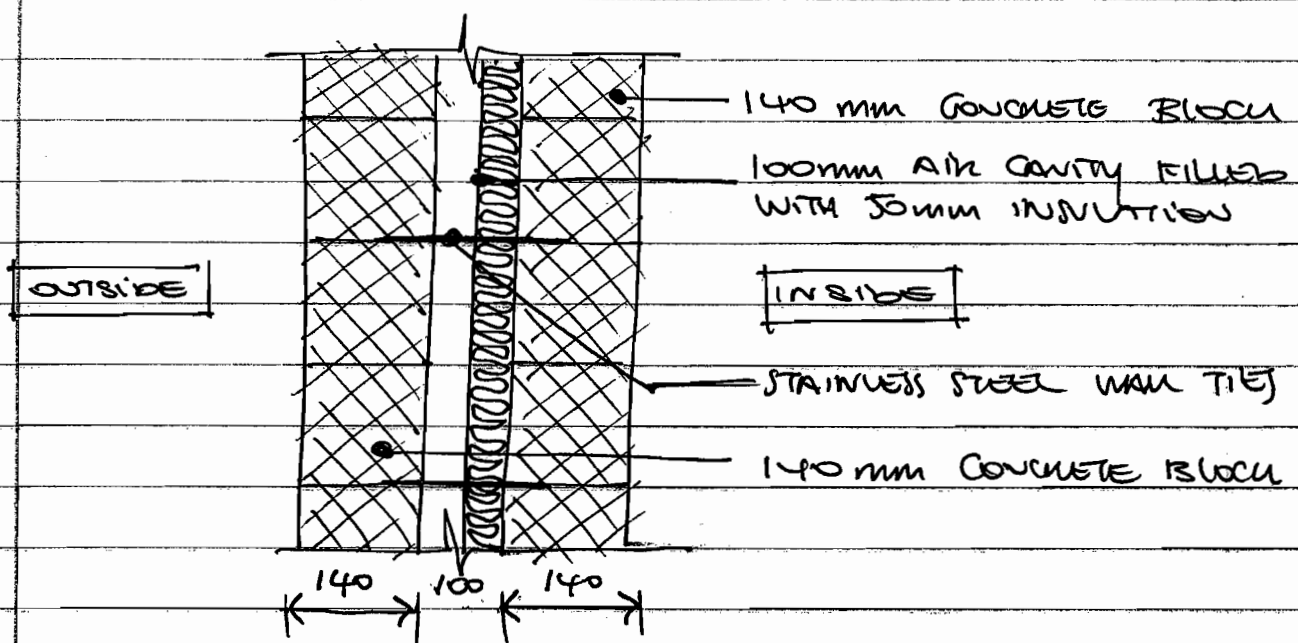 140 mm CONCRETE BLOCK
100mm AIR CAVITY FILLED
WITH 50mm INSULATION
OUTSIDE
INSIDE
STAINLESS STEEL WALL TIES
140 mm CONCRETE BLOCK
140 100 140